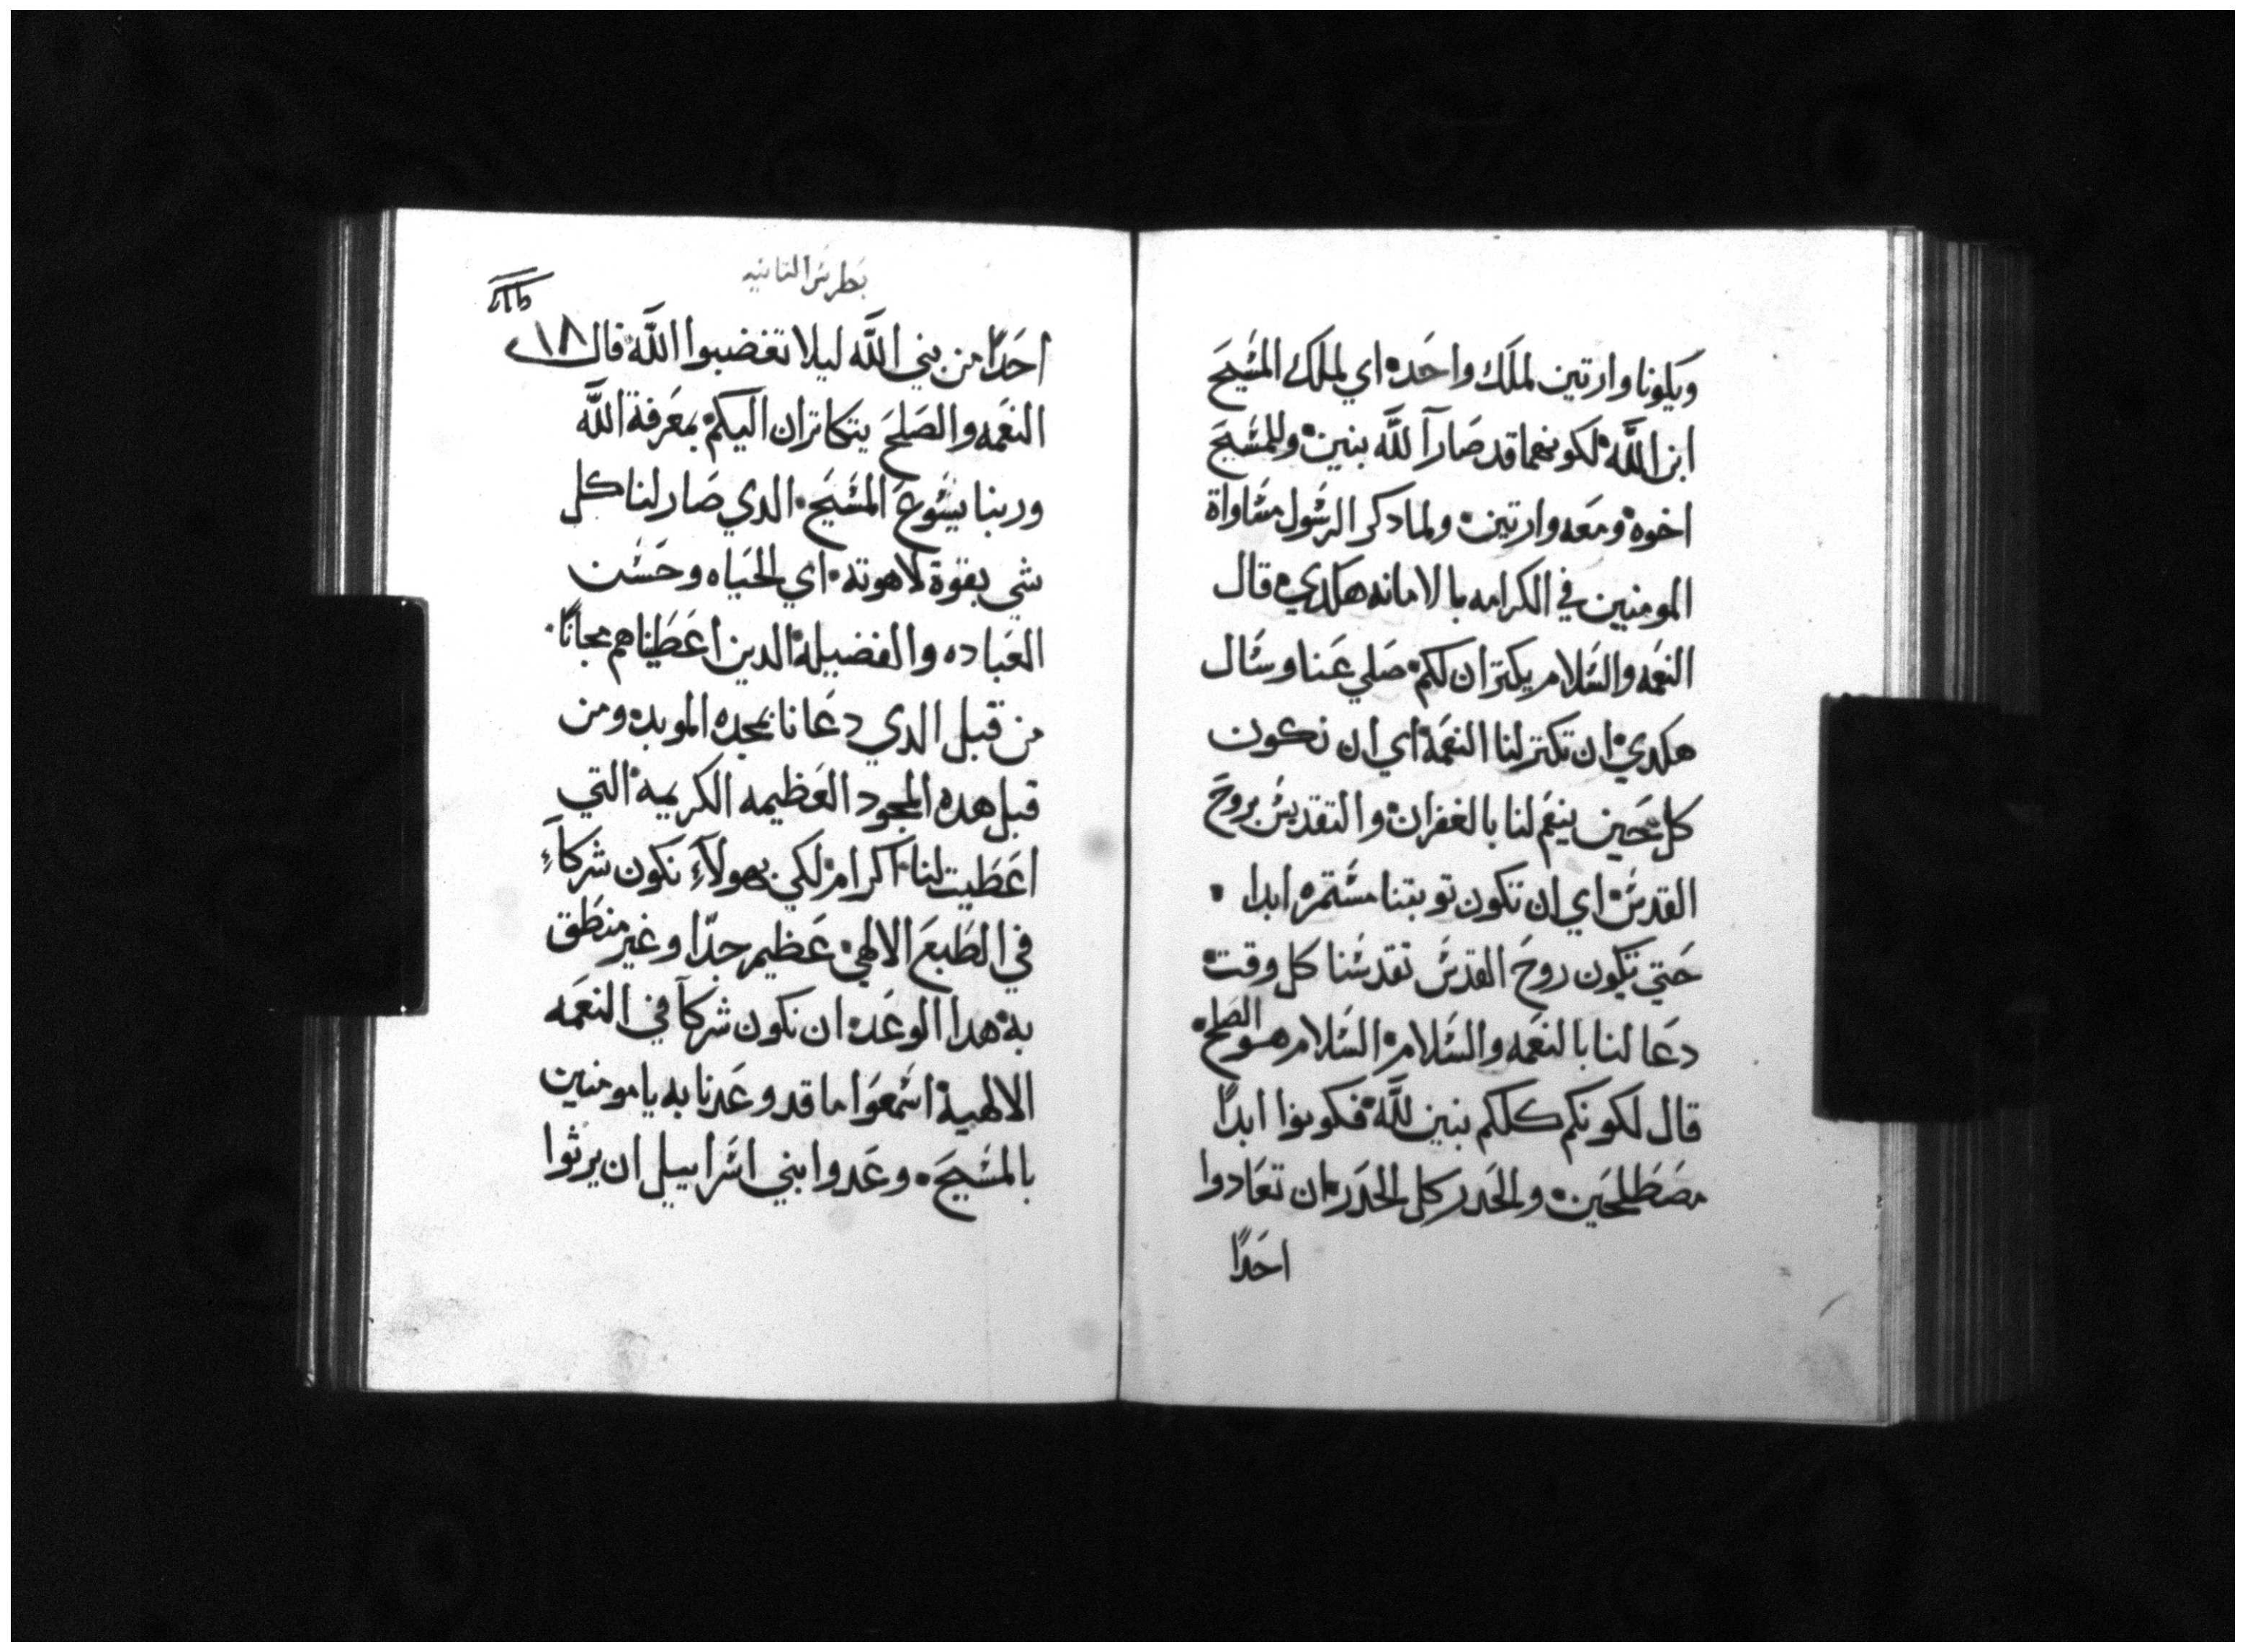 ويكونا وارتين لملك واحد اي لملك المسيح
ابن الله لكونهما قد صارا لله بنين وللمسيح
اخوه ومعه وارتين ولما دكر الرسول مساواة
المومنين في الكرامه بالامانه هكدي قال
النعمه والسلام يكتران لكم صلي عنا وسال
هكدي ان تكتر لنا النعمة اي ان نكون
كل حين ينعم لنا بالغفران والتقديس بروح
القدس اي ان تكون توبتنا مستمره ابدا
حتي تكون روح القدس تقدسنا كل وقت
دعا لنا بالنعمه والسلام السلام هو الصلح
قال لكونكم كلكم بنين لله فكونوا ابدًا
مصطلحين والحدر كل الحدر ان تعادوا
احدًا
بطرس التانيه
احدًا من بني الله ليلا تغضبوا الله قال ١٨
النعمه والصلح يتكاتران اليكم بمعرفة الله
وربنا يسوع المسيح الدي صار لنا كل
شي بقوة لاهوته اي الحياه وحسن
العباده والفضيلة الدين اعطيناهم مجانًا
من قبل الدي دعانا بمجده الموبد ومن
قبل هده المجود العظيمه الكريمة التي
اعطيت لنا اكرام لكي بهولآء نكون شركآء
في الطبع الالهي عظيم جدًا وغير منطق
به هدا الوعد ان نكون شركآ في النعمه
الالهية اسمعوا ما قد وعدنا به يا مومنين
بالمسيح وعدوا بني اسراييل ان يرثوا